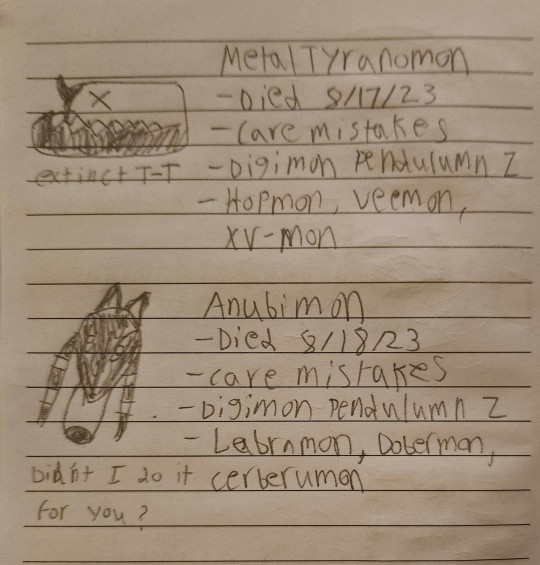 MetalTyranomon
- Died 8/17/23
X
- Care mistakes
extinct T-T
- Digimon Pendulumn Z
- Hopmon, Veemon,
XV-mon
Anubimon
- Died 8/18/23
- care mistakes
- Digimon Pendulumn Z
- Labramon, Doberman,
cerberumon
Didn't I do it
for you?